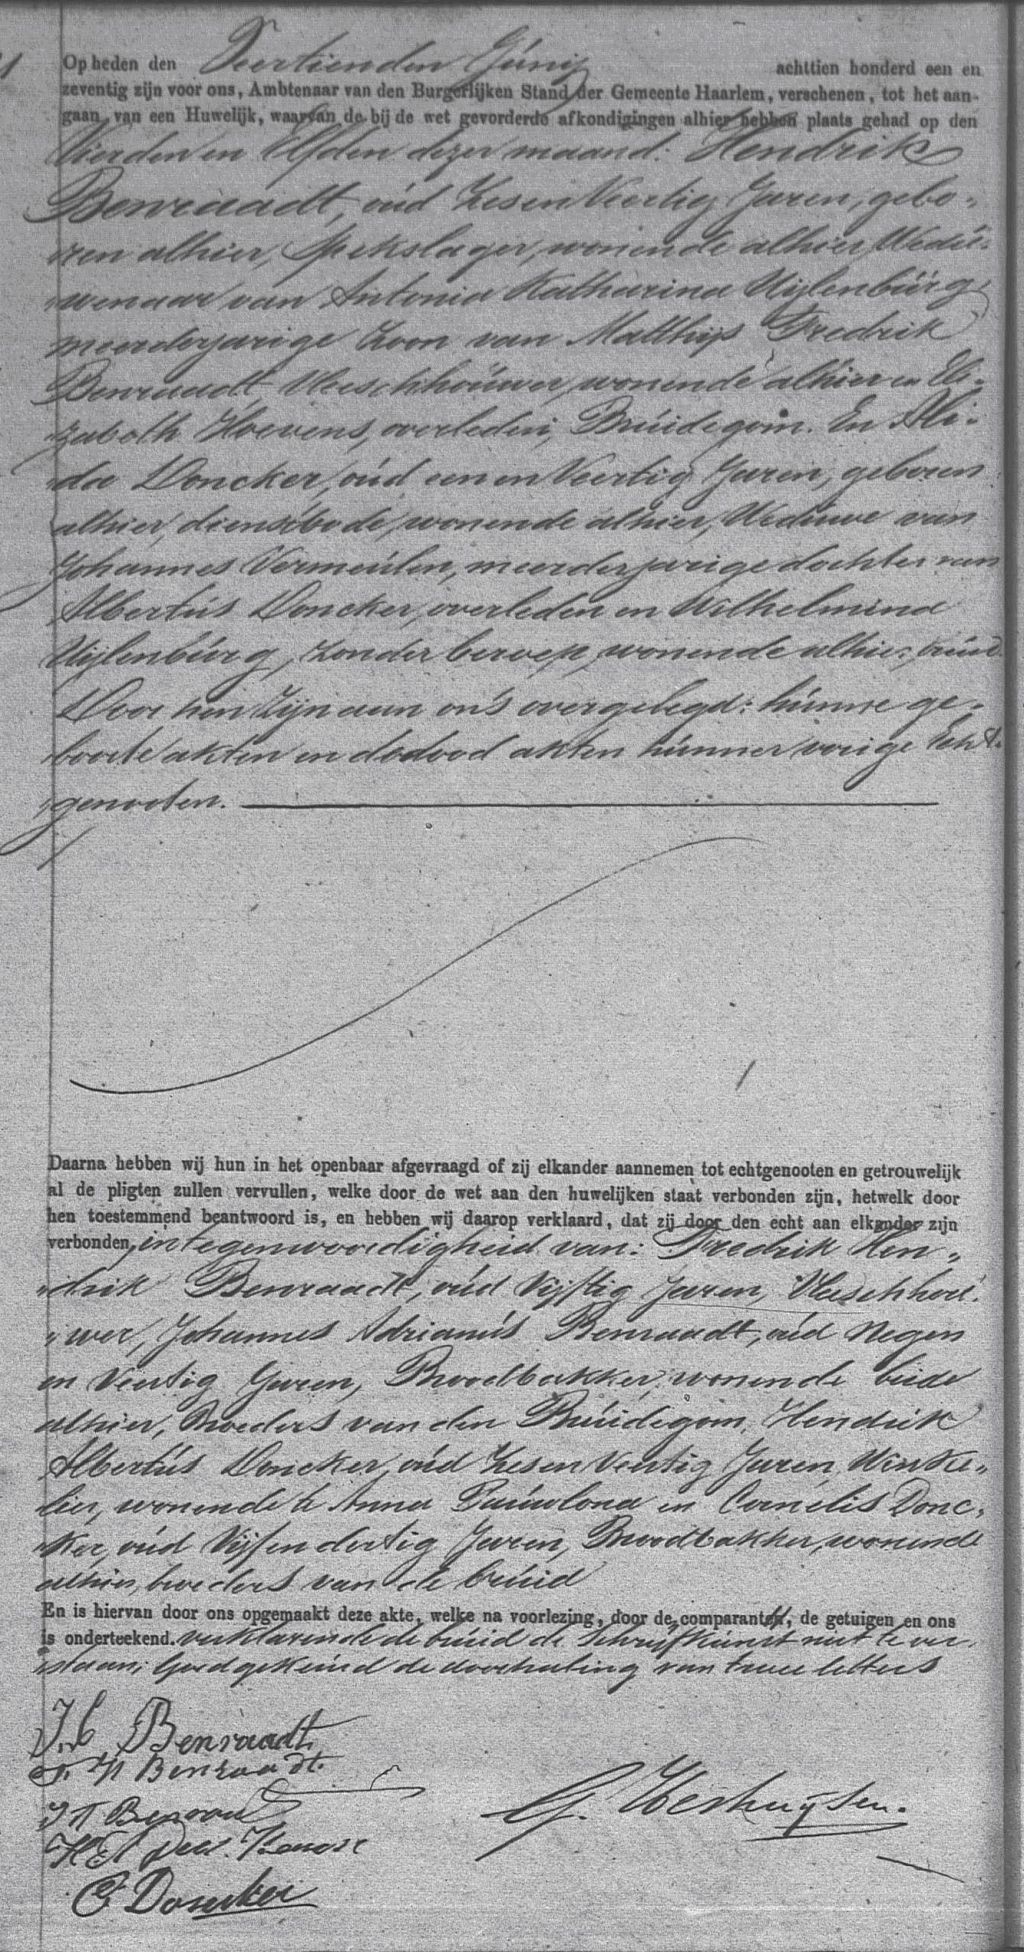 Op heden den Veertienden Junij achttien honderd een en
zeventig zijn voor ons, Ambtenaar van den Burgerlijken Stand der Gemeente Haarlem, verschenen, tot het aan-
gaan van een Huwelijk, waarvan de bij de wet gevorderde afkondigingen alhier hebben plaats gehad op den
Vierden en Elfden dezer maand. Hendrik
Benraadt, oud Zes en Veertig Jaren, gebo-
ren alhier, Spekslager, wonende alhier, Wedu-
wenaar van Antonia Katharina Uijlenburg,
meerderjarige Zoon van Matthijs Fredrik
Benraadt, Vleeschhouwer, wonende alhier en Eli-
zabeth Hoevens, overleden, Bruidegom. En Ali-
da Doncker, oud een en Veertig Jaren, geboren
alhier, dienstbode, wonende alhier, Weduwe van
Johannes Vermeulen, meerderjarige dochter van
Albertus Doncker, overleden en Wilhelmina
Uijlenburg, Zonder beroep, wonende alhier, bruid.
Door hen Zijn aan ons overgelegd: hunne ge-
boorte akten en de dood akten hunner vorige Echt-
genooten.
Daarna hebben wij hun in het openbaar afgevraagd of zij elkander aannemen tot echtgenooten en getrouwelijk
al de pligten zullen vervullen, welke door de wet aan den huwelijken staat verbonden zijn, hetwelk door
hen toestemmend beantwoord is, en hebben wij daarop verklaard, dat zij door den echt aan elkander zijn
verbonden, in tegenwoordigheid van: Fredrik Hen-
drik Benraadt, oud Vijftig Jaren, Vleeschhou-
wer, Johannes Adrianus Benraadt, oud Negen
en Veertig Jaren, Broodbakker, wonende beide
alhier, Broeders van den Bruidegom, Hendrik
Albertus Doncker, oud Zes en Veertig Jaren, Winke-
lier, wonende te Anna Pauwlona en Cornelis Donc-
ker, oud Vijf en dertig Jaren, Broodbakker, wonende
alhier, broeders van de bruid
En is hiervan door ons opgemaakt deze akte, welke na voorlezing, door de comparant, de getuigen en ons
is onderteekend. verklarende de bruid de Schrijfkunst niet te ver-
staan; Goedgekeurd de doorhaling van twee letters
Benraadt.
F. H Benraadt.
C Doncker